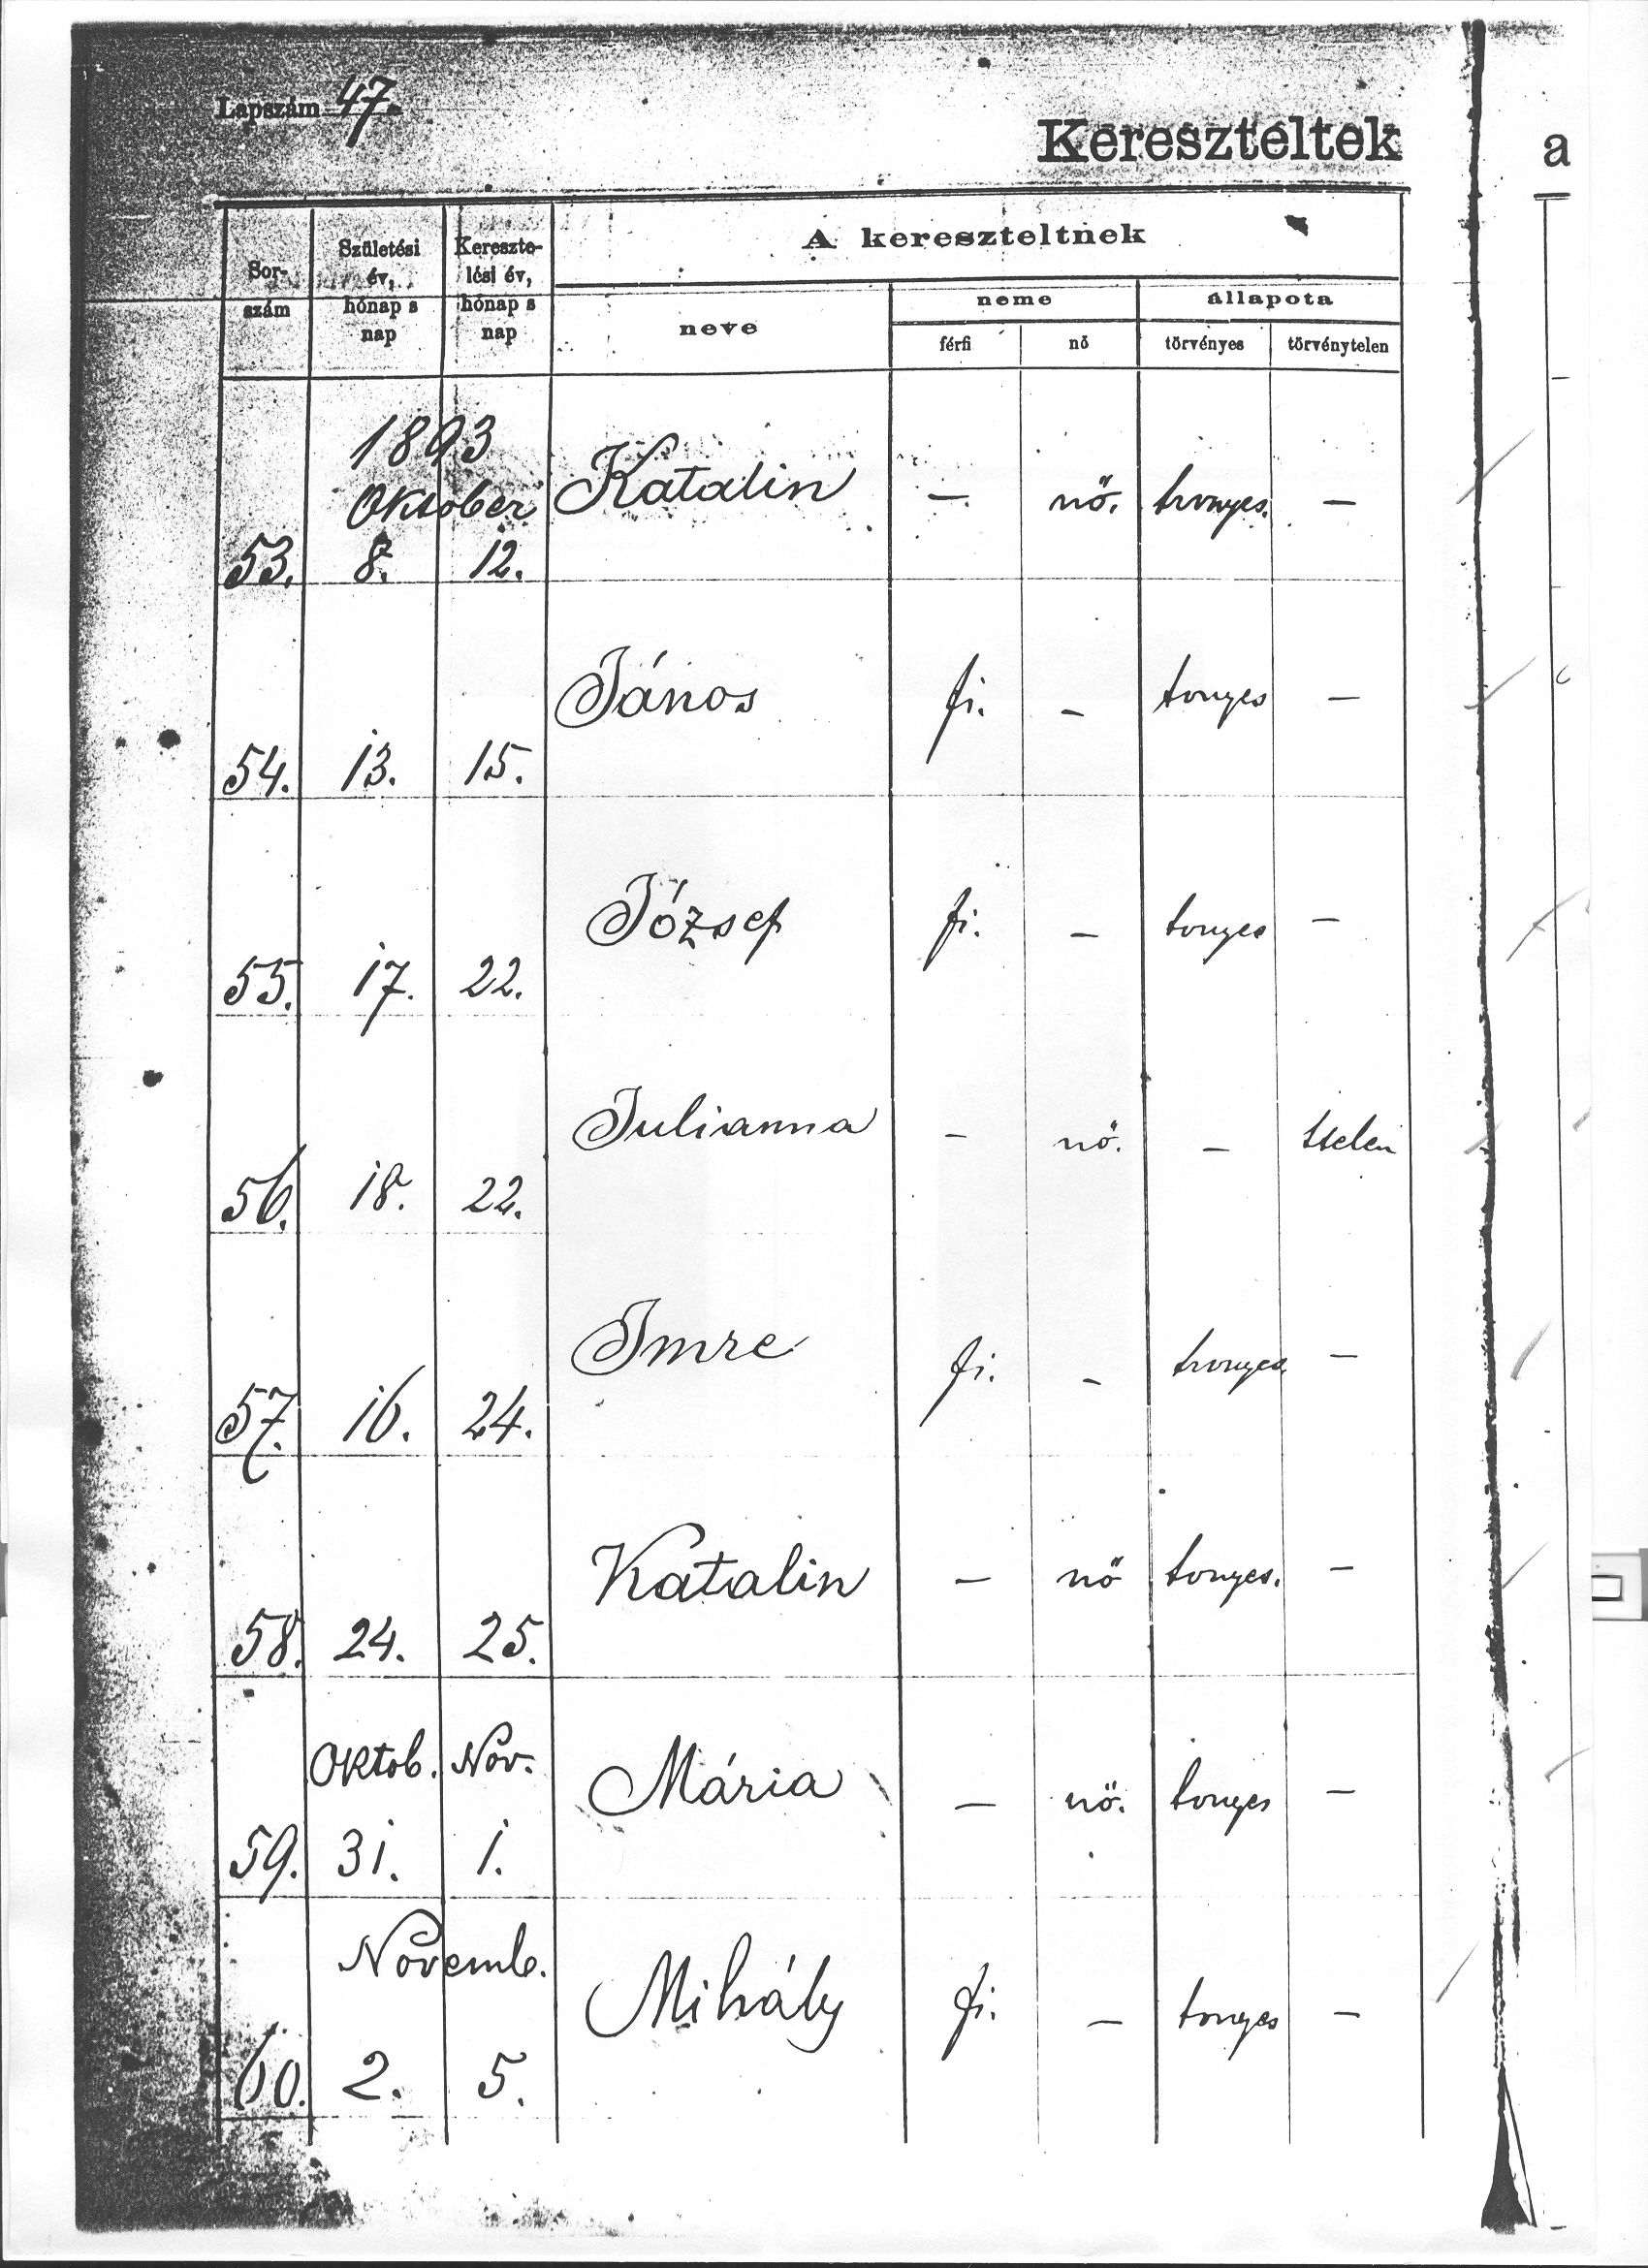 Lapszám 47
Kereszteltek
a
Sor-
szám
Születési
év,
hónap s
nap
Kereszte-
lési év,
hónap s
nap
A kereszteltnek
neve
neme
állapota
férfi
nő
törvényes
törvénytelen
1893
Oktober
53. 8. 12. Katalin — nő. trvnyes. —
54. 13. 15. János fi. — tvnyes —
55. 17. 22. József fi. — tvnyes —
56. 18. 22. Julianna — nő. — ttelen
57. 16. 24. Imre fi. — trvnyes. —
58. 24. 25. Katalin — nő tvnyes. —
Oktob. Nov.
59. 31. 1. Mária — nő. tvnyes —
Novemb.
60. 2. 5. Mihály fi. — tvnyes —